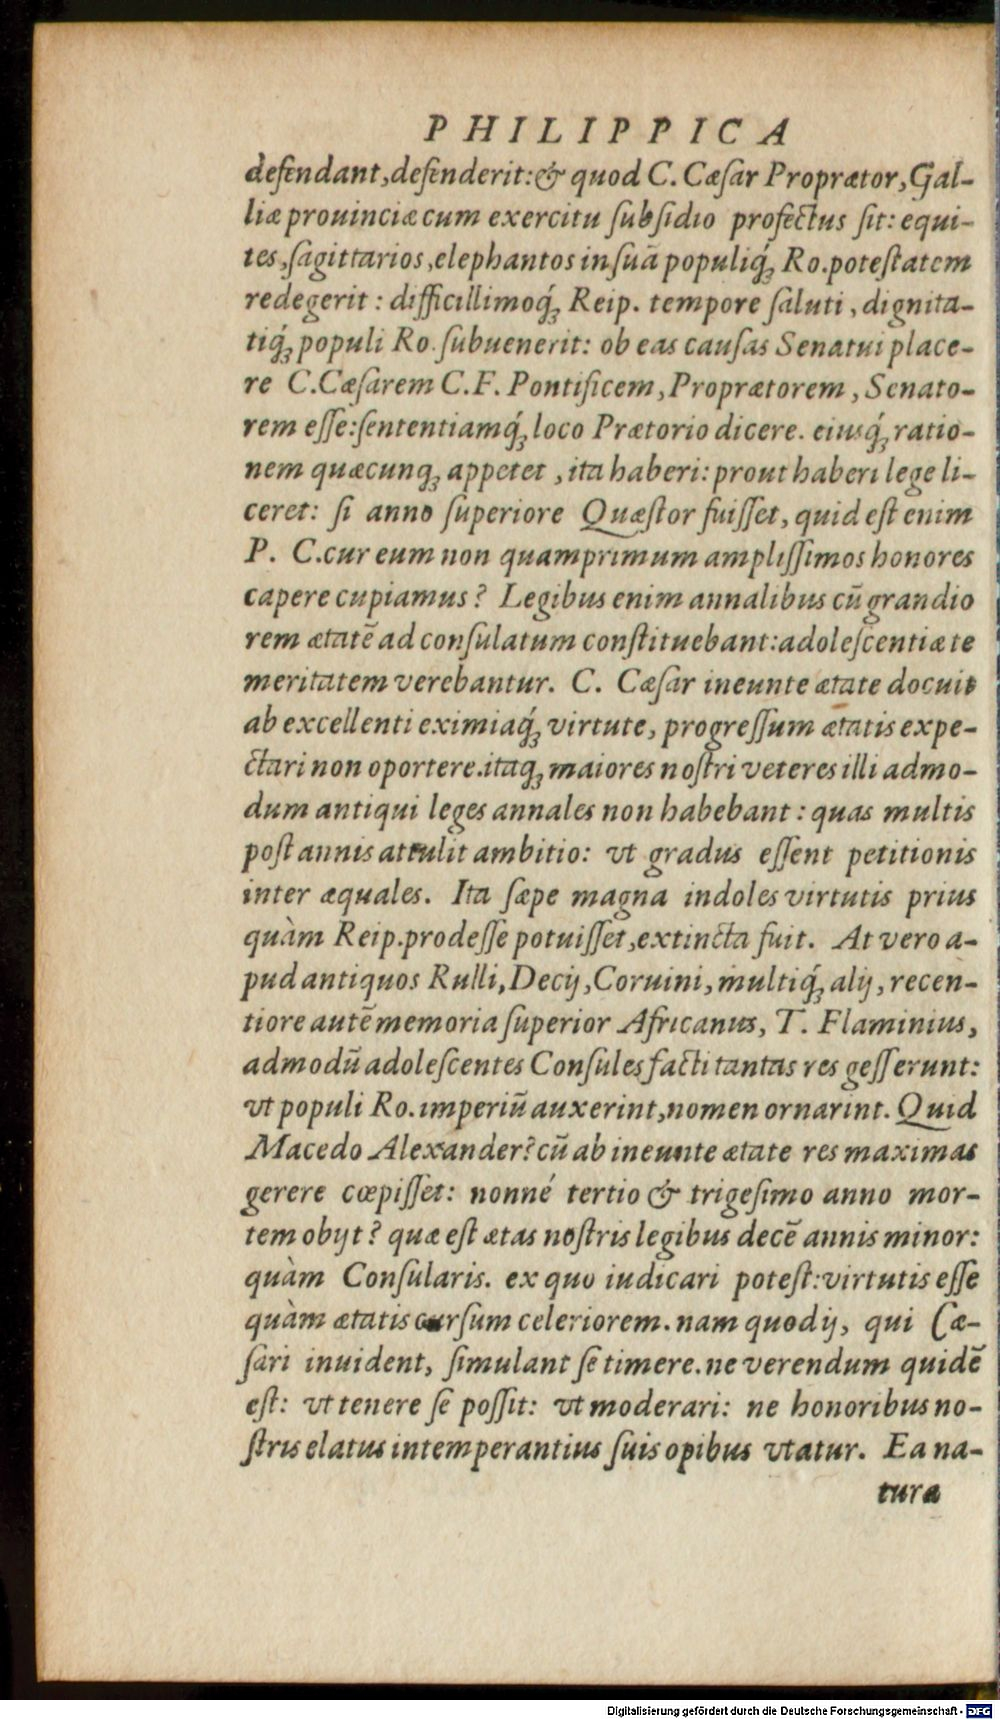 PHILIPPICA
defendant, defenderit: & quod C. Cæſar Proprætor, Gal-
liæ prouinciæ cum exercitu ſubſidio profectus ſit: equi-
tes, ſagittarios, elephantos in ſuā populiq́ꝫ Ro. poteſtatem
redegerit: difficillimoq́ꝫ Reip. tempore ſaluti, dignita-
tiq́ꝫ populi Ro. ſubuenerit: ob eas cauſas Senatui place-
re C. Cæſarem C. F. Pontificem, Proprætorem, Senato-
rem eſſe: ſententiamq́ꝫ loco Prætorio dicere. eiusq́ꝫ ratio-
nem quæcunqꝫ appetet, ita haberi: prout haberi lege li-
ceret: ſi anno ſuperiore Quæſtor fuiſſet, quid eſt enim
P. C. cur eum non quamprimum ampliſſimos honores
capere cupiamus? Legibus enim annalibus cū grandio
rem ætatē ad conſulatum conſtituebant: adoleſcentiæ te
meritatem verebantur. C. Cæſar ineunte ætate docuit
ab excellenti eximiaq́ꝫ virtute, progreſſum ætatis expe-
ctari non oportere. itaqꝫ maiores noſtri veteres illi admo-
dum antiqui leges annales non habebant: quas multis
poſt annis attulit ambitio: vt gradus eſſent petitionis
inter æquales. Ita ſæpe magna indoles virtutis prius
quàm Reip. prodeſſe potuiſſet, extincta fuit. At vero a-
pud antiquos Rulli, Decij, Coruini, multiq́ꝫ alij, recen-
tiore autē memoria ſuperior Africanus, T. Flaminius,
admodū adoleſcentes Conſules facti tantas res geſſerunt:
vt populi Ro. imperiū auxerint, nomen ornarint. Quid
Macedo Alexander? cū ab ineunte ætate res maximas
gerere cœpiſſet: nonné tertio & trigeſimo anno mor-
tem obijt? quæ eſt ætas noſtris legibus decē annis minor:
quàm Conſularis. ex quo iudicari poteſt: virtutis eſſe
quàm ætatis curſum celeriorem. nam quod ij, qui Cæ-
ſari inuident, ſimulant ſe timere. ne verendum quidē
eſt: vt tenere ſe poſſit: vt moderari: ne honoribus no-
ſtris elatus intemperantius ſuis opibus vtatur. Ea na-
tura
Digitalisierung gefördert durch die Deutsche Forschungsgemeinschaft - DFG